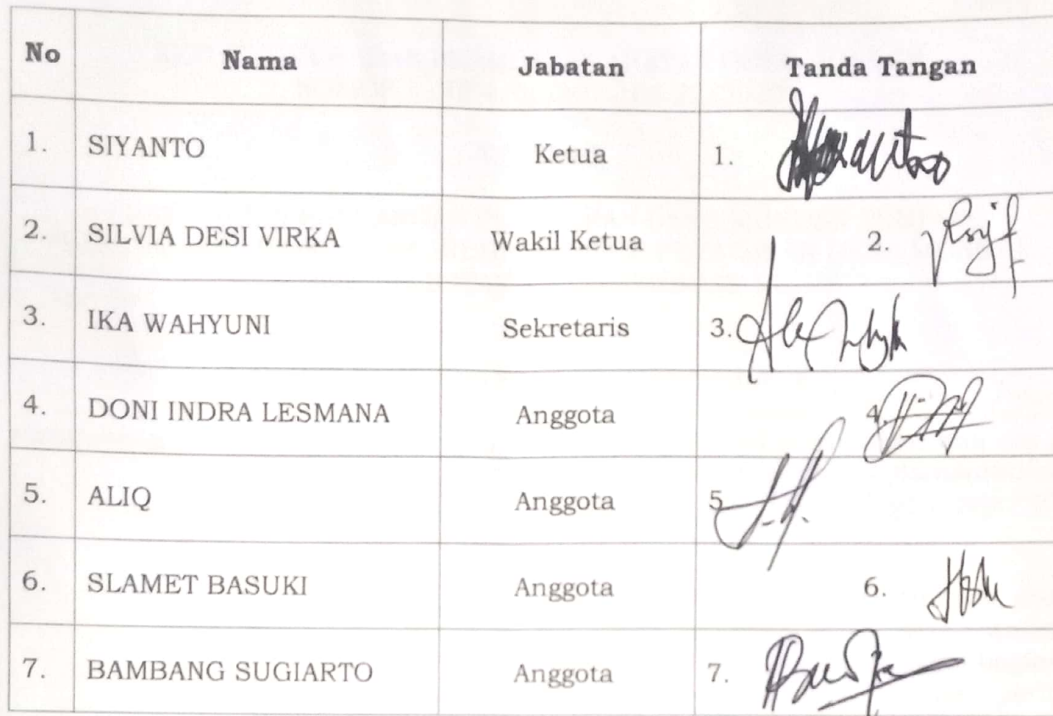 No Nama Jabatan Tanda Tangan
1. SIYANTO Ketua 1.
2. SILVIA DESI VIRKA Wakil Ketua 2.
3. IKA WAHYUNI Sekretaris 3.
4. DONI INDRA LESMANA Anggota 4.
5. ALIQ Anggota 5
6. SLAMET BASUKI Anggota 6.
7. BAMBANG SUGIARTO Anggota 7.